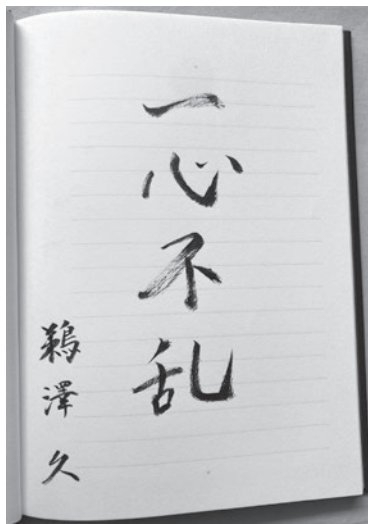 一心不乱
鵜澤久